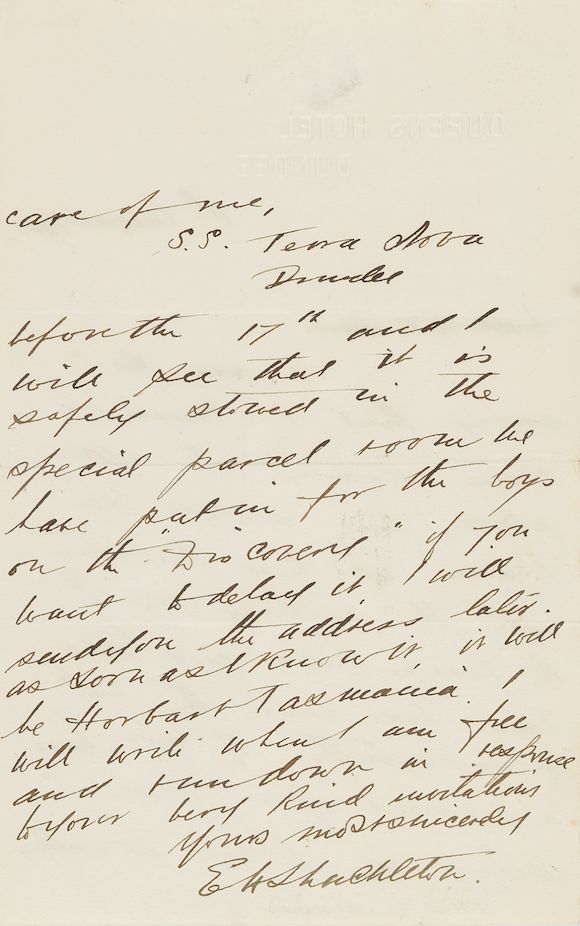 QUEENS HOTEL
DUNDEE
care of me,
S.S. Terra Nova
Dundee
before the 17th and I
will see that it is
safely stowed in the
special parcel room we
have put in for the boys
on the "Discovery" if you
want to delay it I will
send you the address later.
as soon as I know it, it will
be Horbart Tasmania. I
will write when I am free
and run down in response
to your very kind invitation
Yours most sincerely
E H Shackleton.